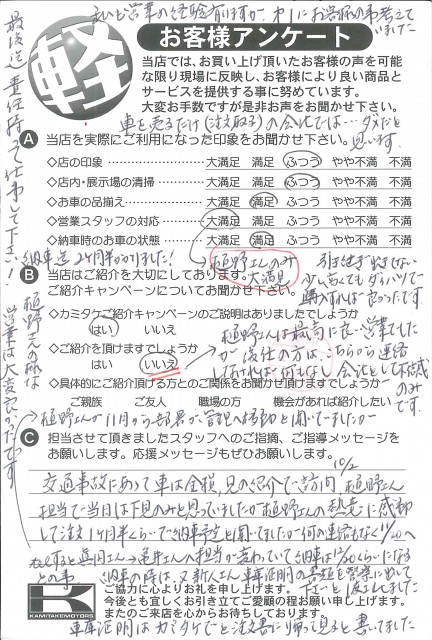 私も営業の経験有りますが、第1にお客様の事考えて
いました
最後迄責任持って仕事して下さい!
軽
お客様アンケート
当店では、お買い上げ頂いたお客様の声を可能
な限り現場に反映し、お客様により良い商品と
サービスを提供する事に努めています。
大変お手数ですが是非お声をお聞かせ下さい。
車を売るだけ(注文取る)の会社では…ダメだと
思います
A 当店を実際にご利用になった印象をお聞かせ下さい。
◇店の印象 大満足 満足 ふつう やや不満 不満
◇店内・展示場の清掃 大満足 満足 ふつう やや不満 不満
◇お車の品揃え 大満足 満足 ふつう やや不満 不満
◇営業スタッフの対応 大満足 満足 ふつう やや不満 不満
◇納車時のお車の状態 大満足 満足 ふつう やや不満 不満
納車迄2ヶ月半かかりました!
植野さんのみ
大満足
B 当店はご紹介を大切にしております。
ご紹介キャンペーンについてお聞かせ下さい。
引き継ぎ出きてない
少し高くてもダイハツで
購入すれば良かったです
◇カミタケご紹介キャンペーンのご説明はありましたでしょうか
はい いいえ
植野さんは最高に良い営業でした
◇ご紹介を頂けますでしょうか
はい いいえ
が後任の方は、こちらから連絡
しなければ何もなし 会社として不信感
のみ
です
◇具体的にご紹介頂ける方とのご関係をお聞かせ頂けますでしょうか
ご親族 ご友人 職場の方 機会があれば紹介したい
植野さんが11月から部署が管理へ移動と聞いてましたが
植野さんの様な
営業は大変良かったです
C 担当させて頂きましたスタッフへのご指摘、ご指導メッセージを
お願いします。応援メッセージもぜひお願いします。
10/2
交通事故にあって車は全損、兄の紹介で訪問 植野さん
担当で当日は下見のみと思っていましたが植野さんの熱意に感動
して注文 1ヶ月半くらいで納車予定と聞いてましたが何の連絡もなく
へ
担当が変わっていて納車は くらいになる
との事 納車の時は、又新人さん 車庫証明の書類を警察に出して
下さいと渡されました
ご協力に心よりお礼を申し上げます。
今後とも宜しくお引き立てご愛顧の程お願い申し上げます。
またのご来店を心からお待ちしております。
K
KAMITAKEMOTORS
車庫証明はカミタケでと注文書に 書いてました